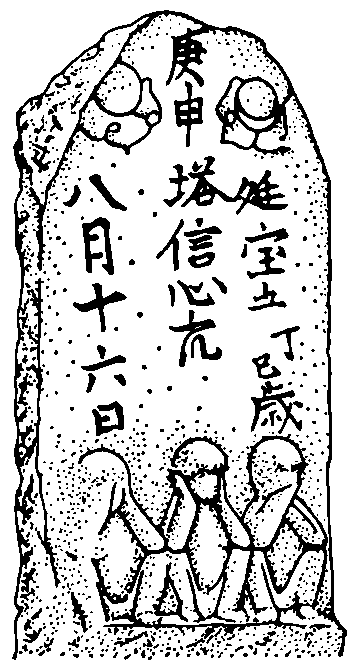 延宝五丁巳歳
庚申塔信心
八月十六日